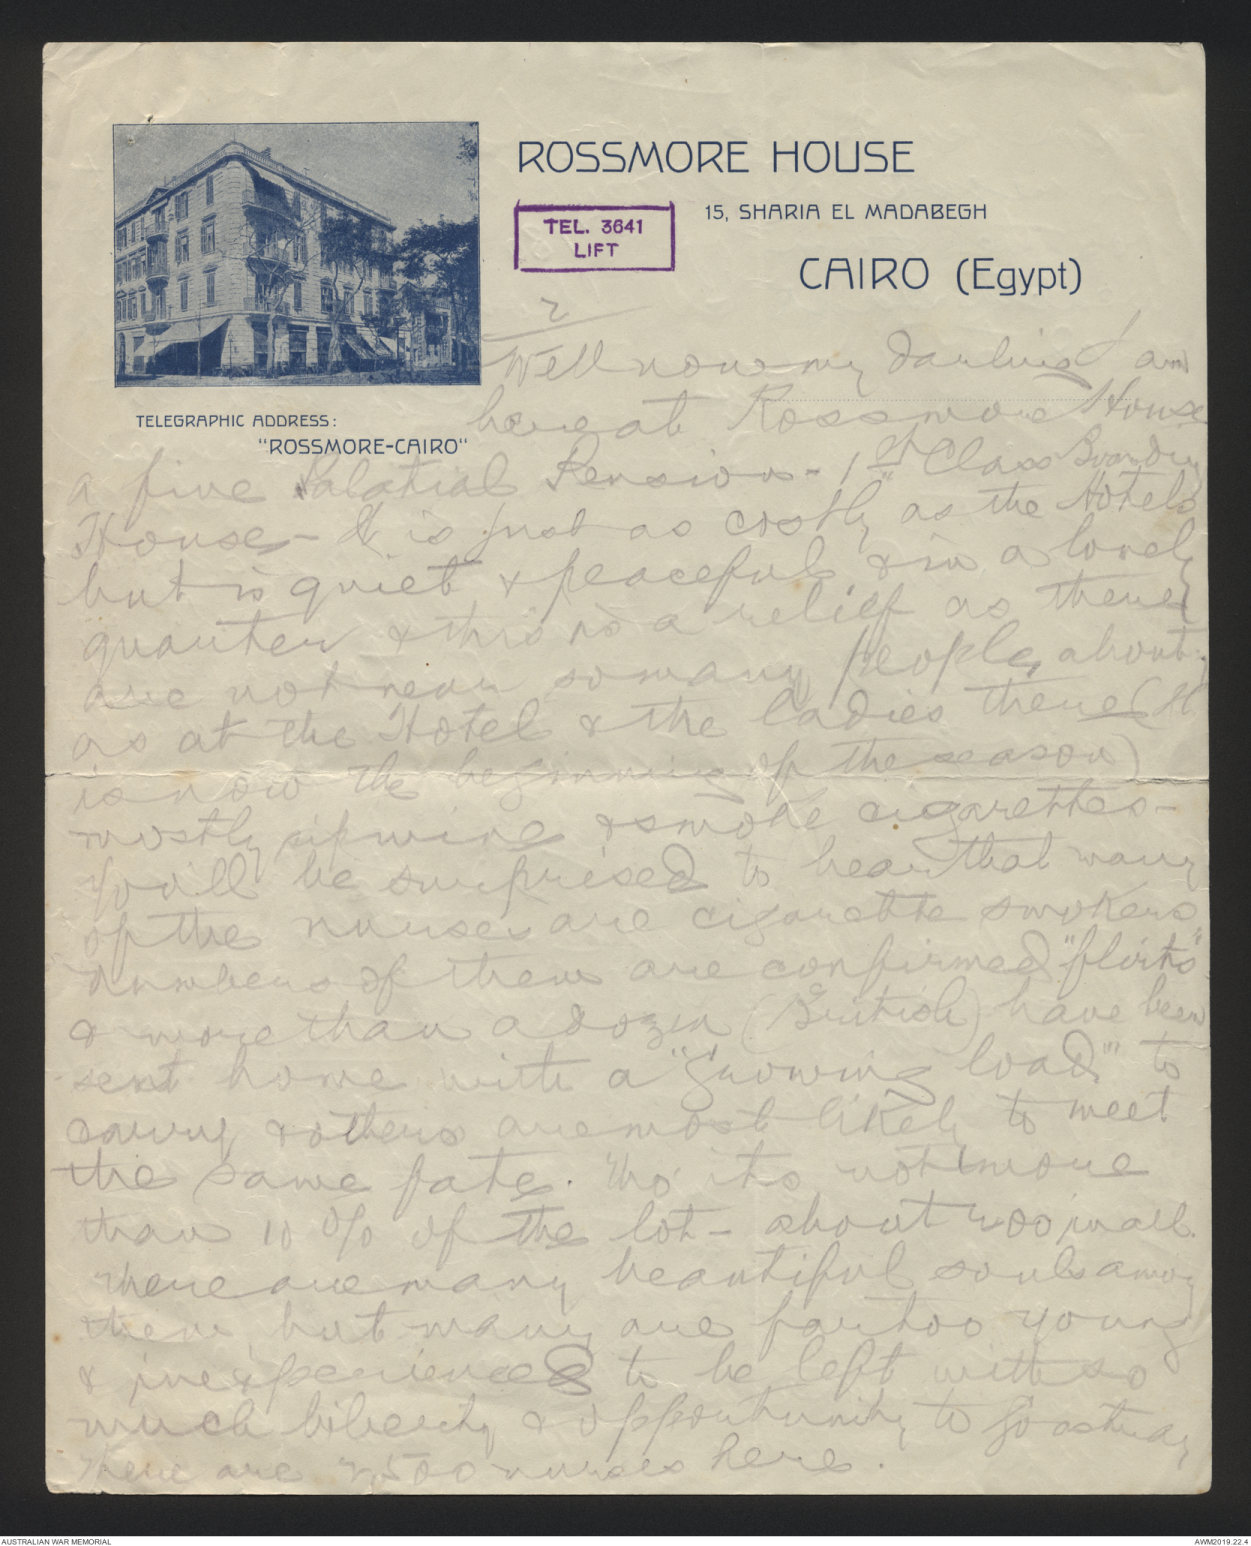 ROSSMORE HOUSE
15, SHARIA EL MADABEGH
TEL. 3641
LIFT
CAIRO (Egypt)
TELEGRAPHIC ADDRESS:
"ROSSMORE-CAIRO"
2
Well now my darling I am
here at Rossmore House
a fine Palatial Pension - 1st Class Boarding
House - It is just as costly as the Hotels
but is quiet & peaceful & in a lovely
quarter & this is a relief as there
are not near so many people about
as at the Hotel & the ladies there (It
is now the beginning of the season)
mostly sip wine & smoke cigarettes -
You'll be surprised to hear that many
of the nurses are cigarette smokers
numbers of them are confirmed "flirts"
& more than a dozen (British) have been
sent home with a "growing load" to
carry & others are most likely to meet
the same fate. Tho' its not more
than 10 % of the lot - about 200 in all.
There are many beautiful souls among
them but many are far too young
& inexperienced to be left with so
much liberty & opportunity to go astray
There are 2500 nurses here.
AUSTRALIAN WAR MEMORIAL
AWM2019.22.4